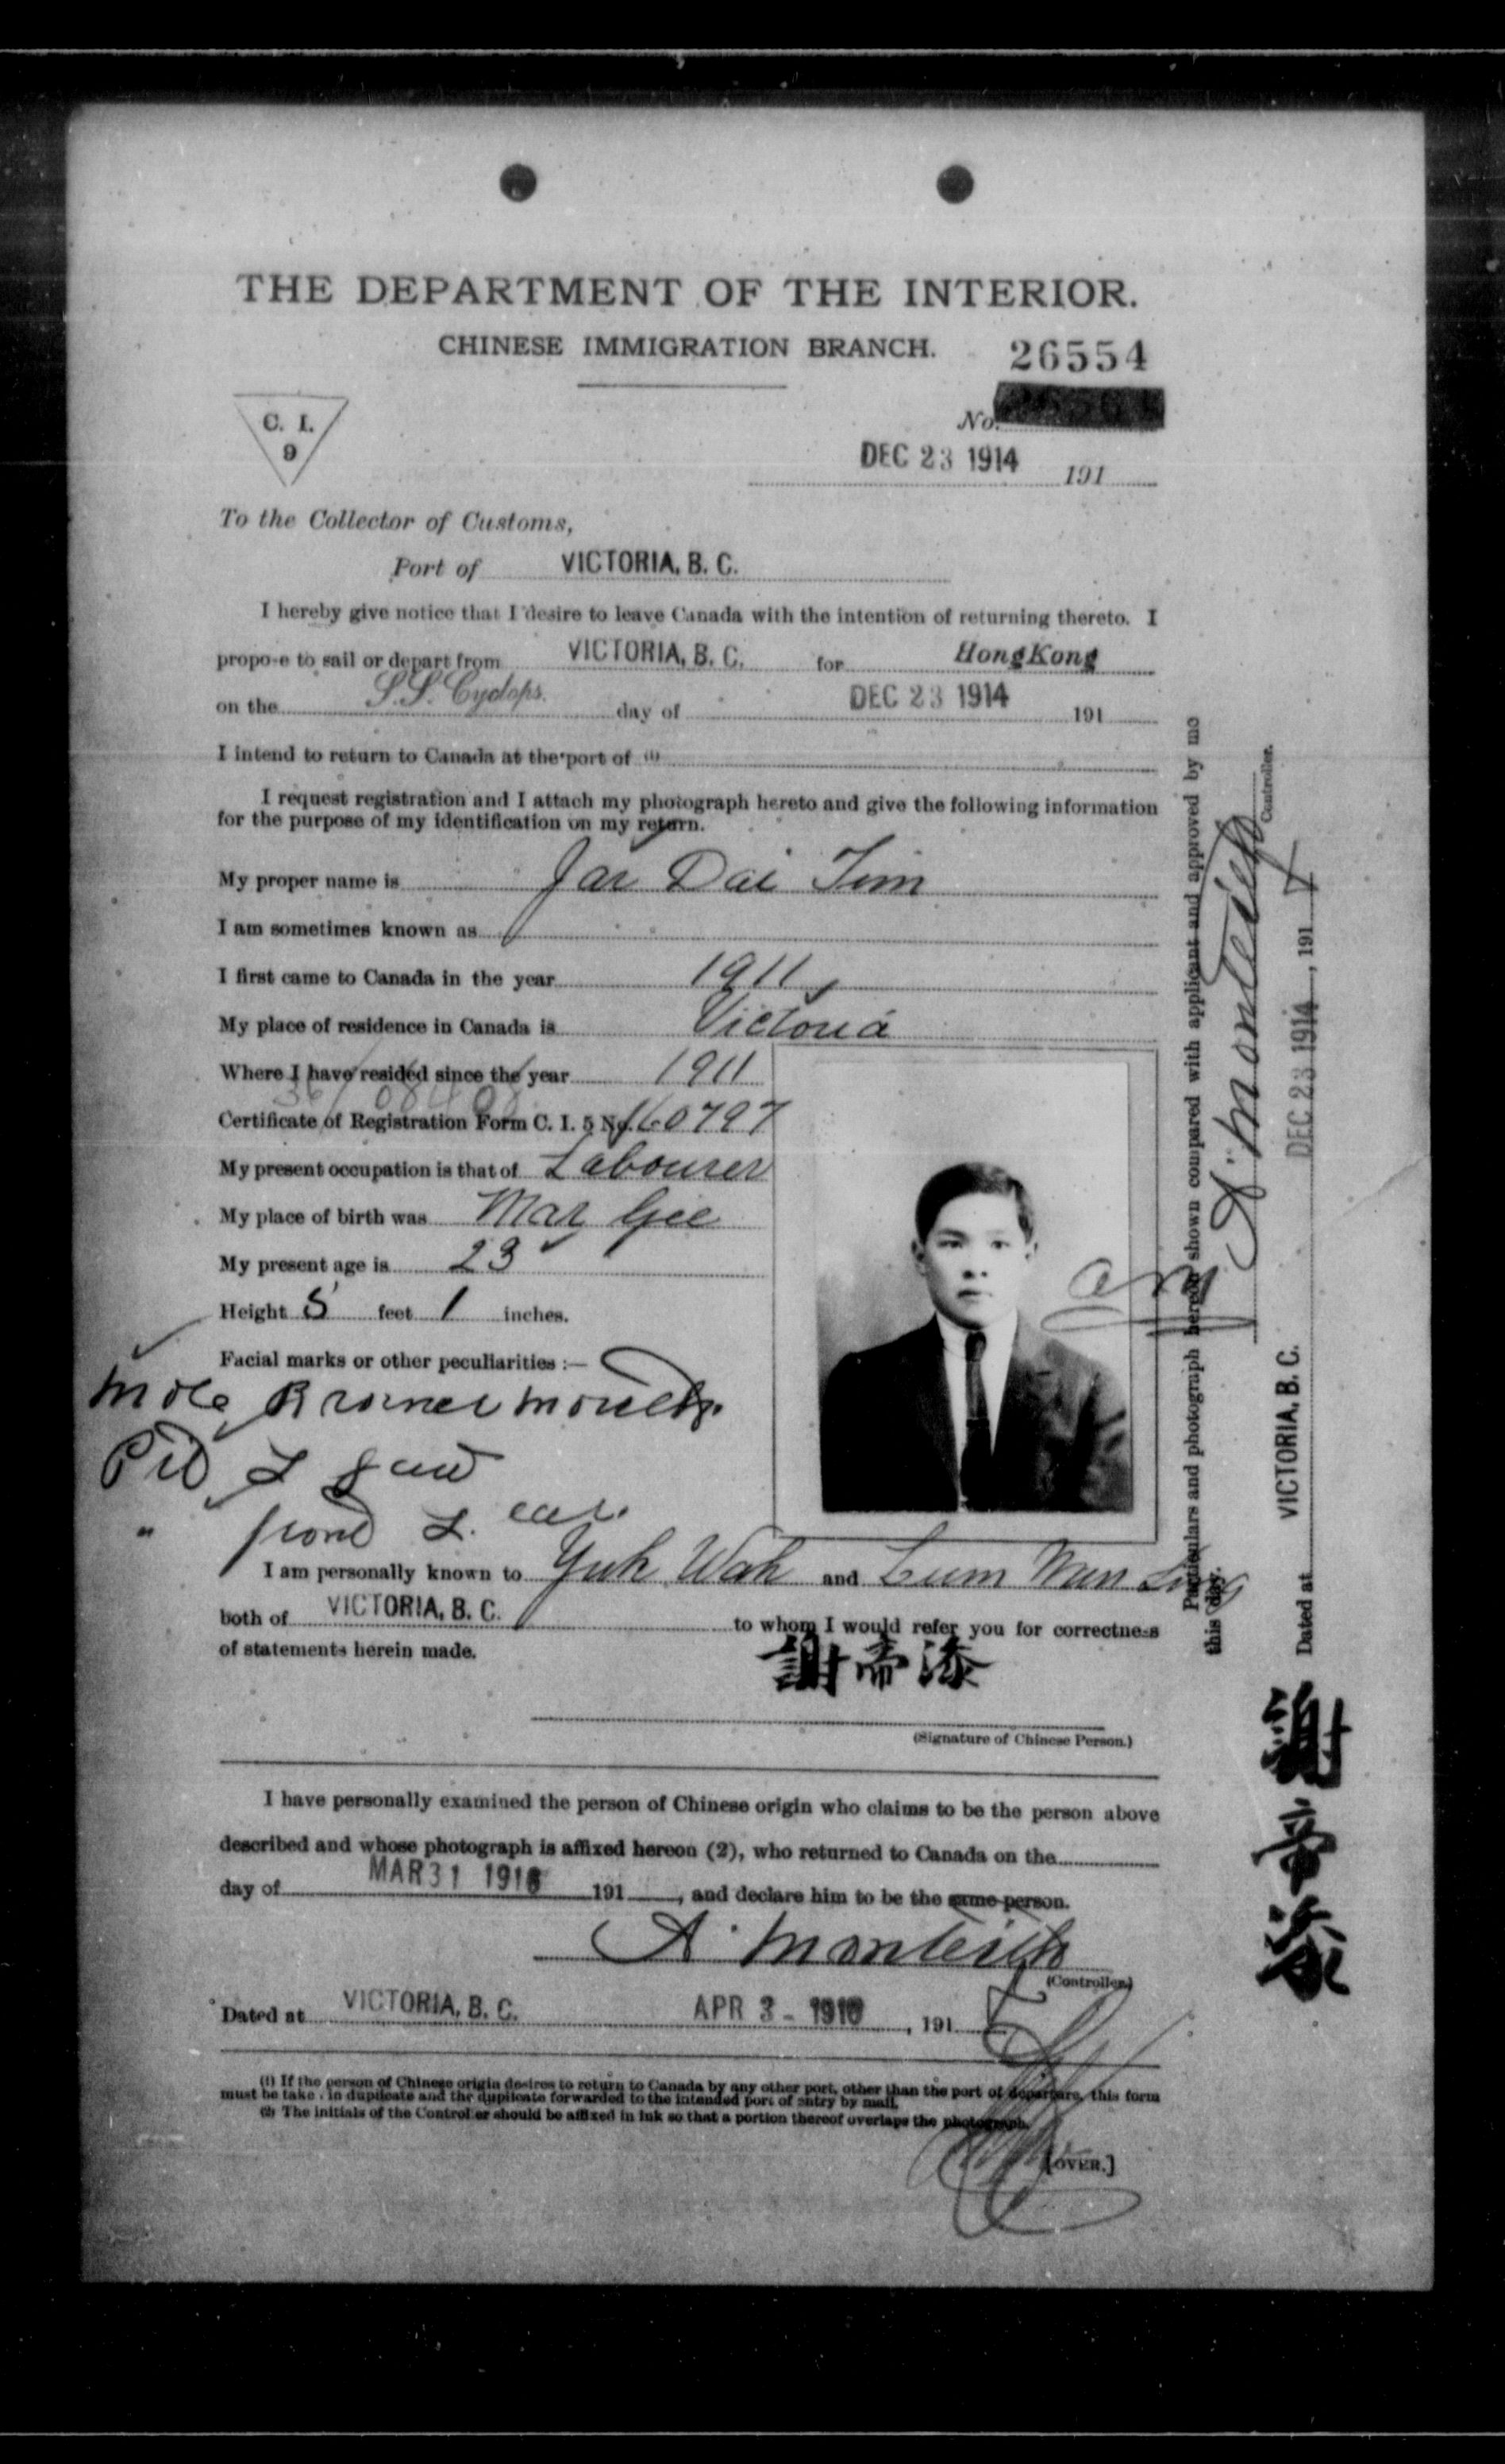 THE DEPARTMENT OF THE INTERIOR.
CHINESE IMMIGRATION BRANCH.
26554
C. I.
9
No.
DEC 23 1914 191
To the Collector of Customs,
Port of VICTORIA, B. C.
I hereby give notice that I desire to leave Canada with the intention of returning thereto. I
propose to sail or depart from VICTORIA, B. C. for HongKong
on the S.S. Cyclops. day of DEC 23 1914 191
I intend to return to Canada at the port of (1)
I request registration and I attach my photograph hereto and give the following information
for the purpose of my identification on my return.
My proper name is Jar Dai Tim
I am sometimes known as
I first came to Canada in the year 1911
My place of residence in Canada is Victoria
Where I have resided since the year 1911
Certificate of Registration Form C. I. 5 No. 60797
My present occupation is that of Labourer
My place of birth was Mar Gee
My present age is 23
Height 5 feet 1 inches.
Facial marks or other peculiarities :—
Mole R corner mouth.
Pit L jaw
" front L. ear.
I am personally known to Yuh Wah and Lum Mun
both of VICTORIA, B. C. to whom I would refer you for correctness
of statements herein made.
謝帝添
(Signature of Chinese Person.)
I have personally examined the person of Chinese origin who claims to be the person above
described and whose photograph is affixed hereon (2), who returned to Canada on the
day of MAR 31 1916 191 , and declare him to be the same person.
A. Monteith
(Controller.)
Dated at VICTORIA, B. C. APR 3 - 1916 , 191
(1) If the person of Chinese origin desires to return to Canada by any other port, other than the port of departure, this form
must be taken in duplicate and the duplicate forwarded to the intended port of entry by mail.
(2) The initials of the Controller should be affixed in ink so that a portion thereof overlaps the photograph.
[OVER.]
am
Particulars and photograph hereon shown compared with applicant and approved by me
this day.
A. Monteith
Controller.
Dated at VICTORIA, B. C. DEC 23 1914 , 191
謝帝添